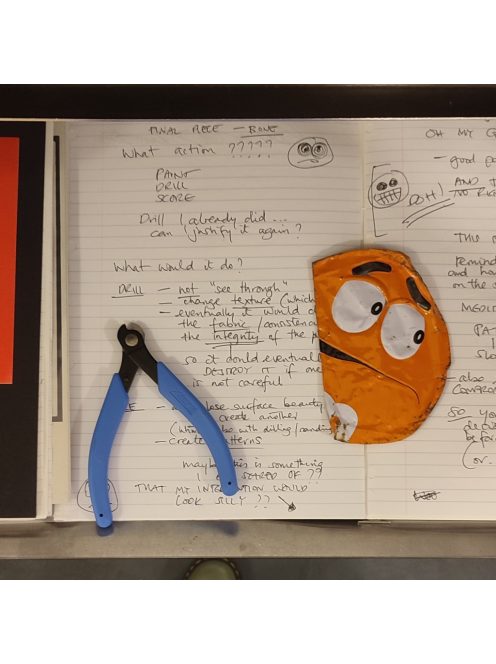 FINAL PIECE — BONE
What action ?????
PAINT
DRILL
SCORE
Drill I already did ...
can I justify it again?
What would it do?
DRILL — not "see through"
— change texture (which
— eventually it would c
the fabric / consisten
the integrity of the p
so it could eventual
DESTROY IT if one
is not careful
E — lose surface beauty
create another
be with drilling/sandin
— create patterns
maybe this is something
I SCARED OF ??
THAT MY INTERVENTION WOULD
LOOK SILLY ??
OH MY G
— good p
DOH!
AND I
NO RIG
THIS
remind
and ha
on the s
MEDI
PA
SLO
— also
COMPROM
SO yo
deci
be far
(or.